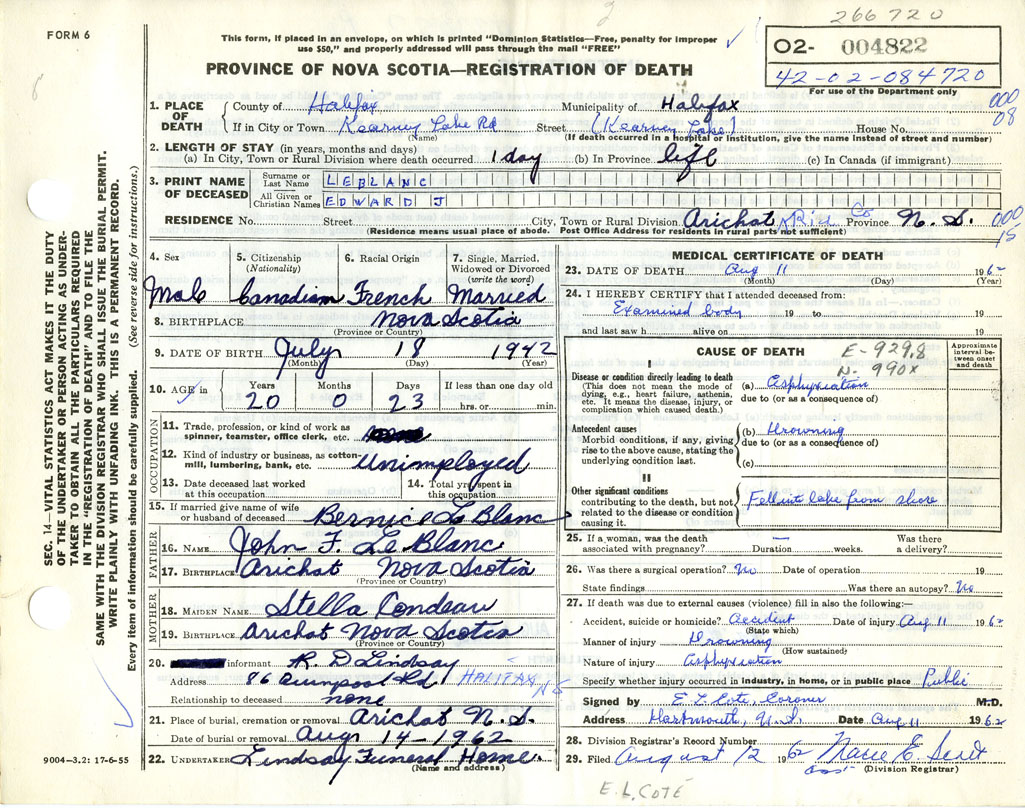 266720
FORM 6
This form, if placed in an envelope, on which is printed "Dominion Statistics—Free, penalty for improper
use $50," and properly addressed will pass through the mail "FREE"
02- 004822
42-02-084720
For use of the Department only
PROVINCE OF NOVA SCOTIA—REGISTRATION OF DEATH
000
08
1. PLACE OF DEATH
County of Halifax Municipality of Halifax
If in City or Town Kearney Lake Rd Street (Kearney Lake) House No.
(Name) (If death occurred in a hospital or institution, give the name instead of street and number)
2. LENGTH OF STAY (in years, months and days)
(a) In City, Town or Rural Division where death occurred 1 day (b) In Province life (c) In Canada (if immigrant)
3. PRINT NAME OF DECEASED
Surname or Last Name LEBLANC
All Given or Christian Names EDWARD J
RESIDENCE No. Street City, Town or Rural Division Arichat Rich Co Province N.S. 000
15
(Residence means usual place of abode. Post Office Address for residents in rural parts not sufficient)
4. Sex Male
5. Citizenship (Nationality) Canadian
6. Racial Origin French
7. Single, Married, Widowed or Divorced (write the word) Married
8. BIRTHPLACE Nova Scotia
(Province or Country)
9. DATE OF BIRTH July 18 1942
(Month) (Day) (Year)
10. AGE in Years Months Days If less than one day old
20 0 23 hrs. or min.
OCCUPATION
11. Trade, profession, or kind of work as spinner, teamster, office clerk, etc.
12. Kind of industry or business, as cotton-mill, lumbering, bank, etc. Unimployed
13. Date deceased last worked at this occupation
14. Total yrs. spent in this occupation
15. If married give name of wife or husband of deceased Bernice LeBlanc
FATHER
16. NAME John F. LeBlanc
17. BIRTHPLACE Arichat Nova Scotia
(Province or Country)
MOTHER
18. MAIDEN NAME Stella Condeau
19. BIRTHPLACE Arichat Nova Scotia
(Province or Country)
20. informant R. D Lindsay
Address 86 Quinpool Rd HALIFAX NS
Relationship to deceased none
21. Place of burial, cremation or removal Arichat N.S.
Date of burial or removal Aug 14-1962
22. UNDERTAKER Lindsay Funeral Home.
(Name and address)
MEDICAL CERTIFICATE OF DEATH
23. DATE OF DEATH Aug 11 1962
(Month) (Day) (Year)
24. I HEREBY CERTIFY that I attended deceased from:
Examined body 19 to 19
and last saw h alive on 19
CAUSE OF DEATH E-929.8
N-990x
Approximate interval between onset and death
I
Disease or condition directly leading to death
(This does not mean the mode of dying, e.g., heart failure, asthenia, etc. It means the disease, injury, or complication which caused death.)
(a) Asphyxiation
due to (or as a consequence of)
Antecedent causes
Morbid conditions, if any, giving rise to the above cause, stating the underlying condition last.
(b) Drowning
due to (or as a consequence of)
(c)
II
Other significant conditions
contributing to the death, but not related to the disease or condition causing it.
Fell into lake from shore
25. If a woman, was the death associated with pregnancy? — Duration weeks. Was there a delivery?
26. Was there a surgical operation? No Date of operation 19
State findings Was there an autopsy? No
27. If death was due to external causes (violence) fill in also the following:—
Accident, suicide or homicide? Accident Date of injury Aug 11 1962
(State which)
Manner of injury Drowning
(How sustained)
Nature of injury Asphyxiation
Specify whether injury occurred in industry, in home, or in public place Public
Signed by E. L. Cote, Coroner M.D.
Address Dartmouth, N.S. Date Aug 11 1962
28. Division Registrar's Record Number
29. Filed August 12 1962
(Division Registrar)
E. L. COTE
9004—3.2: 17-6-55
SEC. 14—VITAL STATISTICS ACT MAKES IT THE DUTY
OF THE UNDERTAKER OR PERSON ACTING AS UNDER-
TAKER TO OBTAIN ALL THE PARTICULARS REQUIRED
IN THE "REGISTRATION OF DEATH" AND TO FILE THE
SAME WITH THE DIVISION REGISTRAR WHO SHALL ISSUE THE BURIAL PERMIT.
WRITE PLAINLY WITH UNFADING INK. THIS IS A PERMANENT RECORD.
Every item of information should be carefully supplied. (See reverse side for instructions.)